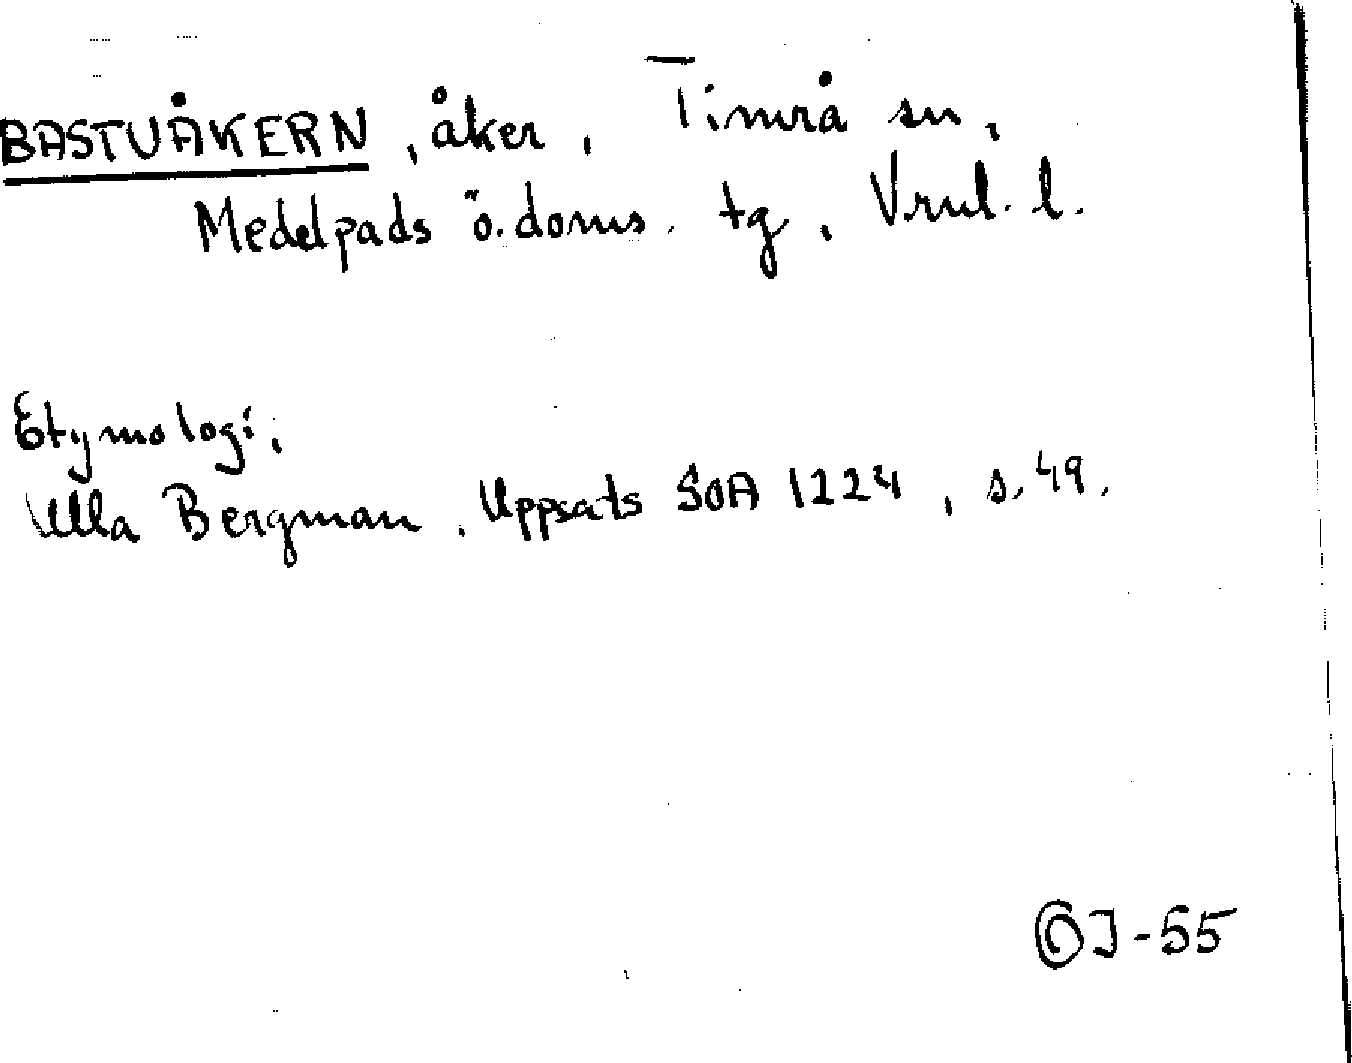 BASTUÅKERN, åker, Timrå sn,
Medelpads ö. doms. tg, Vrnl. l.
Etymologi,
Ulla Bergman, Uppsats SOA 1224, s. 49.
OJ-55